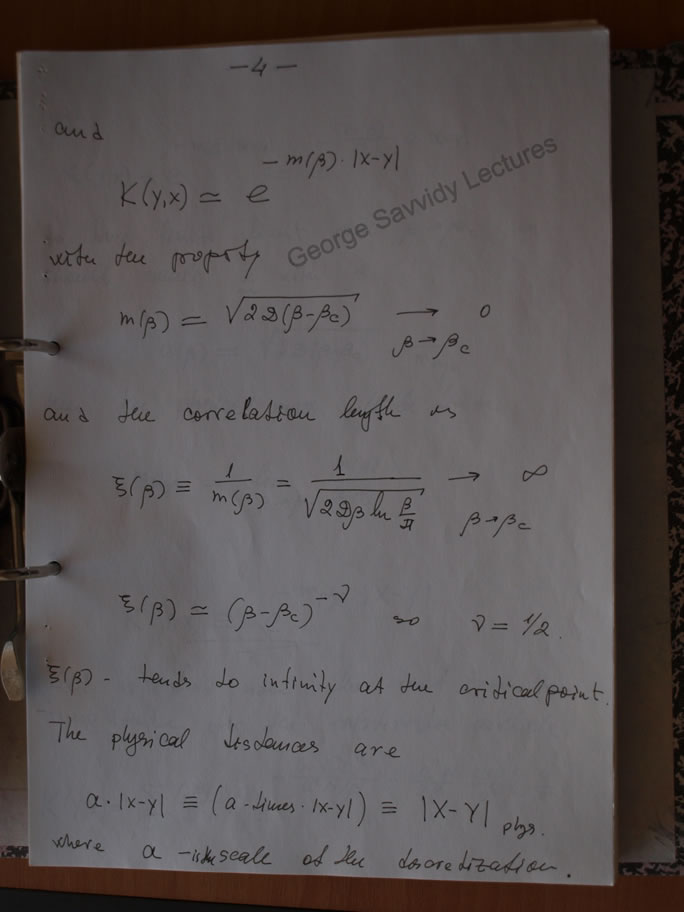 —4—
and
K(y,x) ≃ e^{-m(β)·|x-y|}
George Savvidy Lectures
with the property
m(β) = √(2D(β-β_c)) → 0
β→β_c
and the correlation length is
ξ(β) ≡ 1/m(β) = 1/√(2Dβ ln β/π) → ∞
β→β_c
ξ(β) ≃ (β-β_c)^{-ν} so ν = 1/2.
ξ(β) - tends to infinity at the critical point.
The physical distances are
a·|x-y| ≡ (a-times·|x-y|) ≡ |X-Y| phys.
where a - is the scale of the discretization.